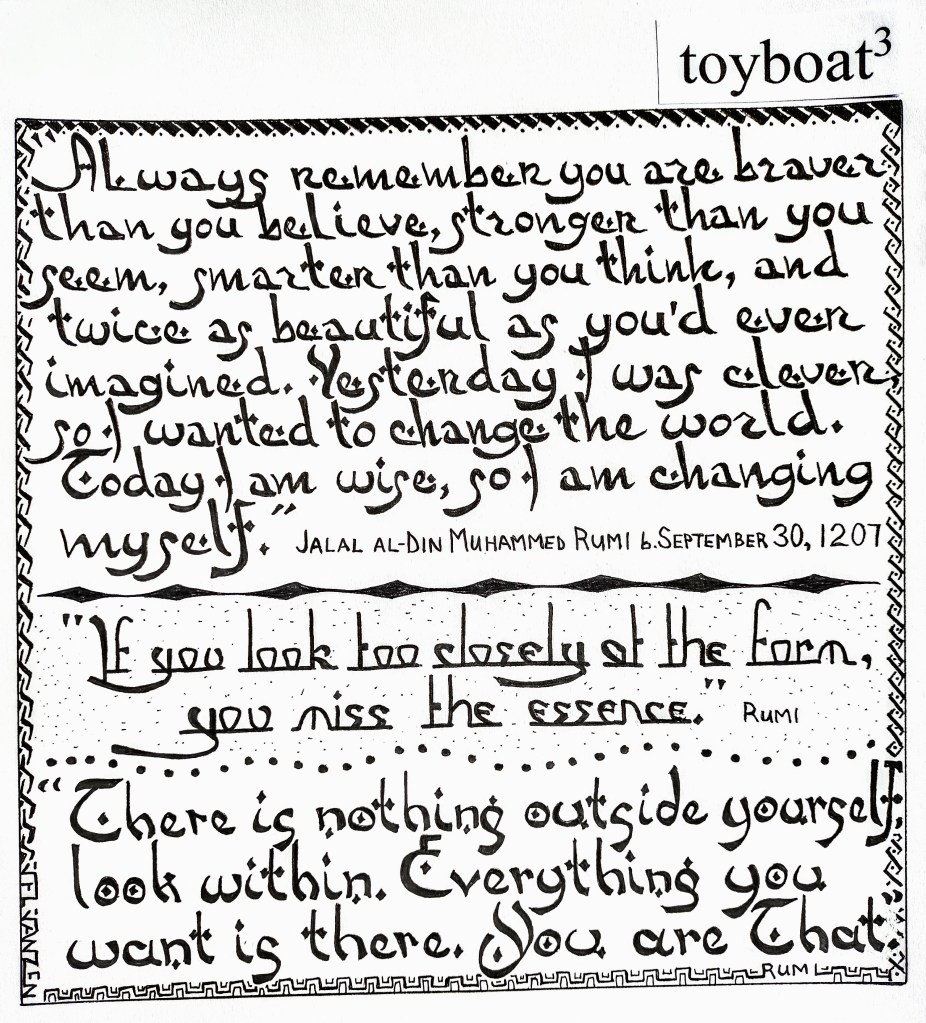 toyboat³
"Always remember you are braver
than you believe, stronger than you
seem, smarter than you think, and
twice as beautiful as you'd ever
imagined. Yesterday I was clever,
so I wanted to change the world.
Today I am wise, so I am changing
myself."
JALAL AL-DIN MUHAMMED RUMI b. SEPTEMBER 30, 1207
"If you look too closely at the form,
you miss the essence." RUMI
"There is nothing outside yourself,
look within. Everything you
want is there. You are That."
RUMI